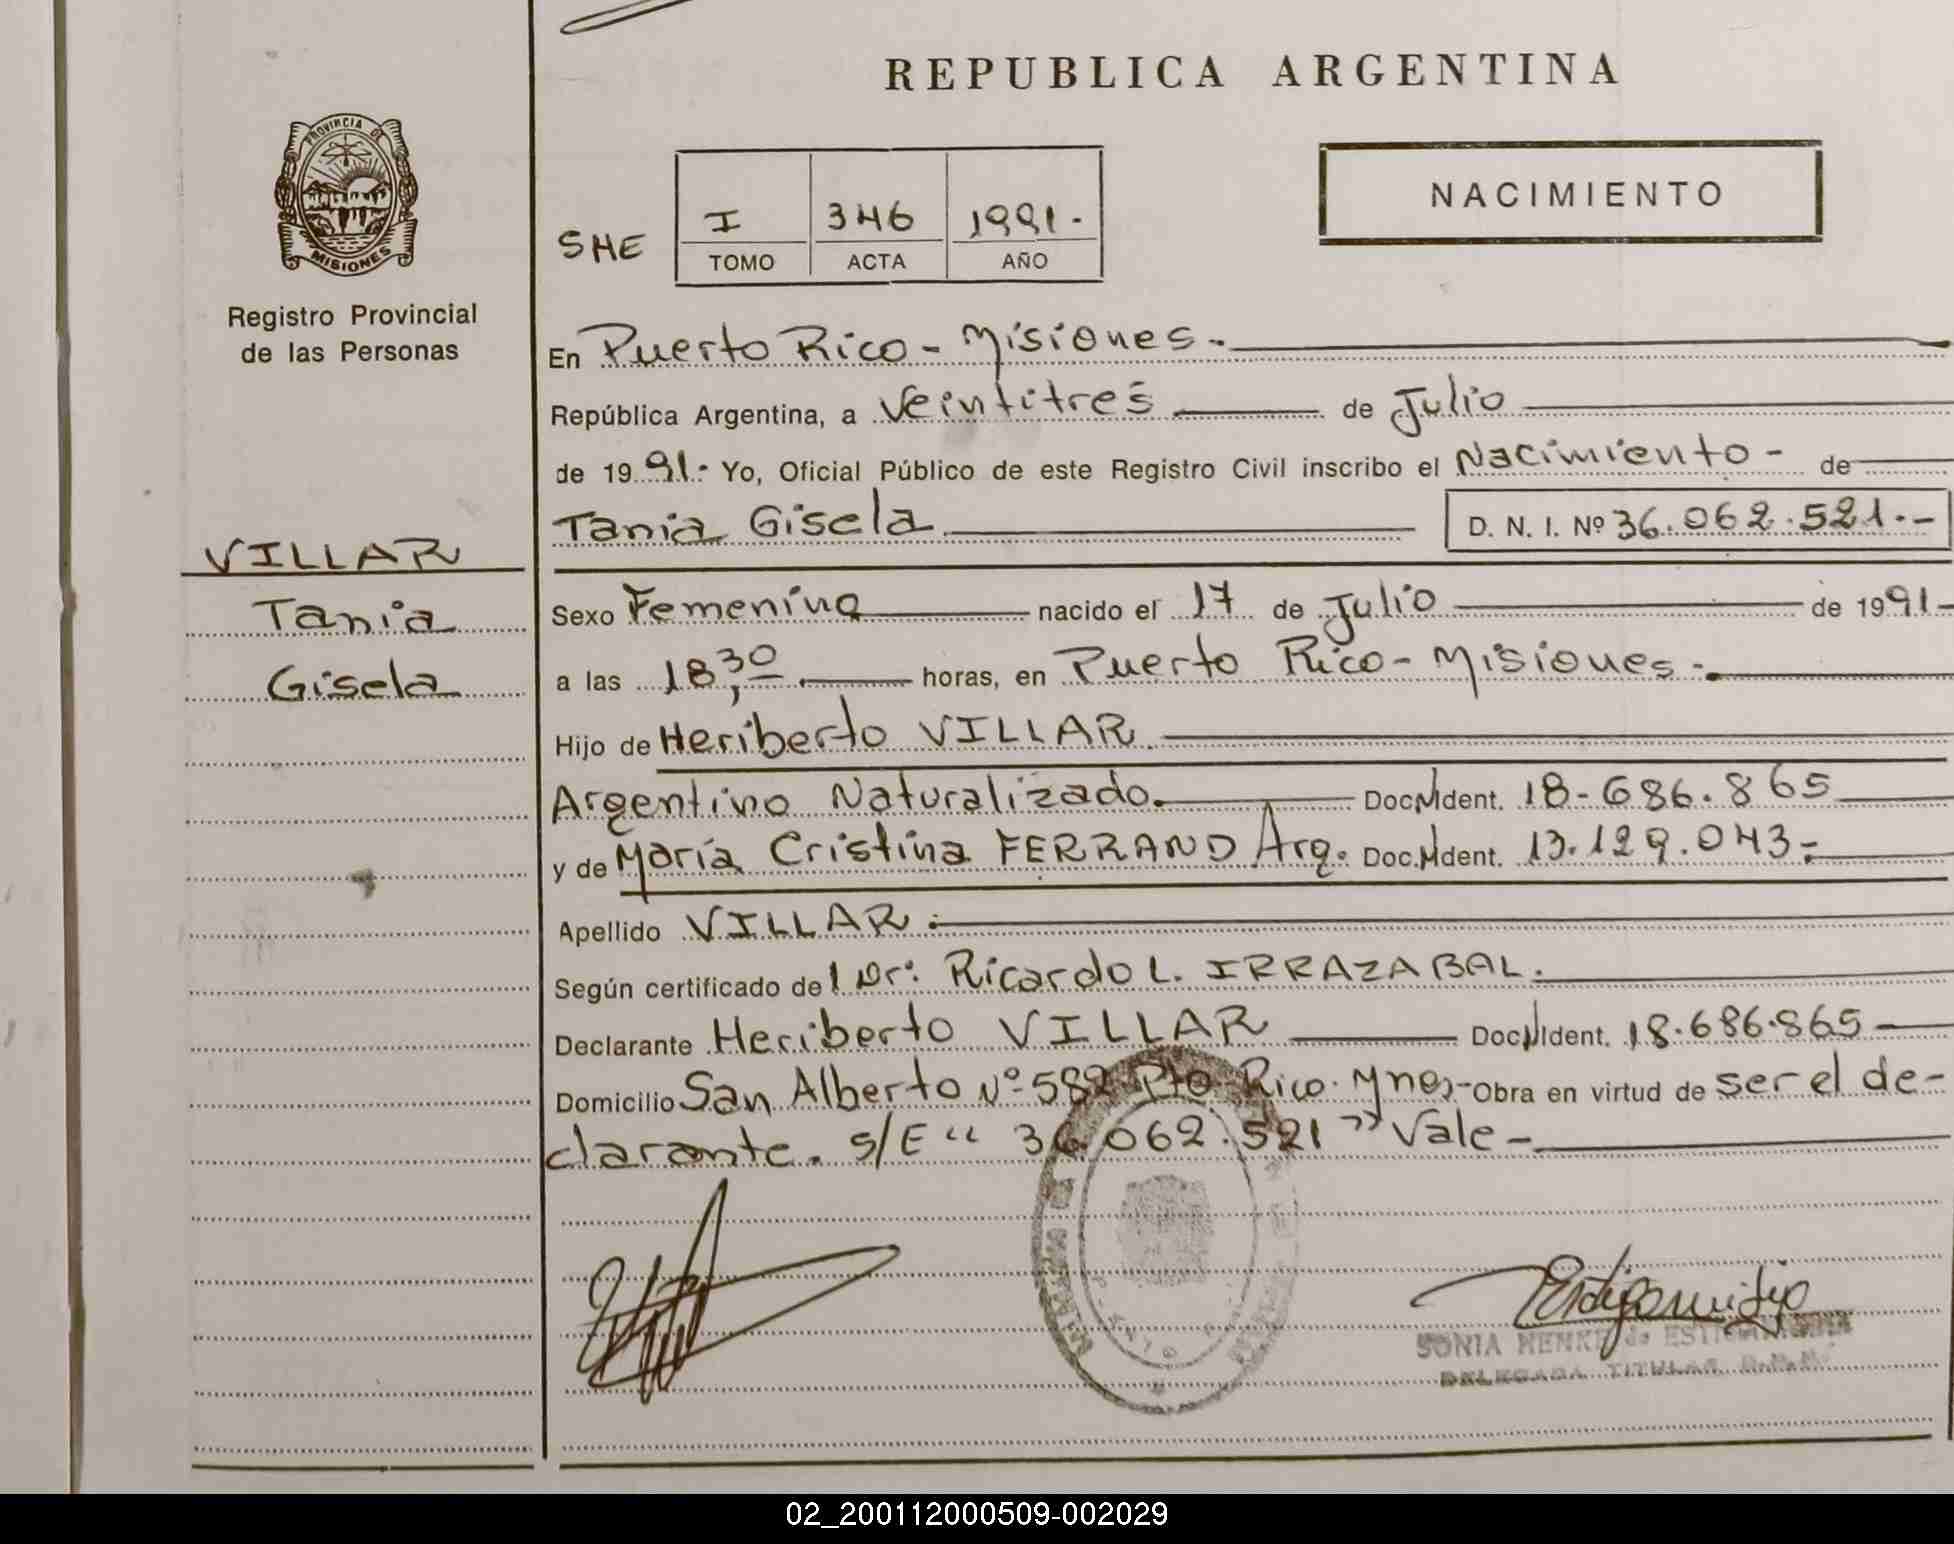 REPUBLICA ARGENTINA
PROVINCIA DE
MISIONES
Registro Provincial
de las Personas
NACIMIENTO
SHE
I 346 1991.-
TOMO ACTA AÑO
En Puerto Rico - Misiones.-
República Argentina, a Veintitres de Julio
de 1991.- Yo, Oficial Público de este Registro Civil inscribo el Nacimiento - de
Tania Gisela D. N. I. Nº 36.062.521.-
VILLAR
Tania
Gisela
Sexo Femenino nacido el 17 de Julio de 1991-
a las 18,30 horas, en Puerto Rico - Misiones.-
Hijo de Heriberto VILLAR
Argentino Naturalizado. Doc. Nident. 18-686.865
y de María Cristina FERRAND Arg. Doc. Nident. 13.129.043.-
Apellido VILLAR.
Según certificado del Dr. Ricardo L. IRRAZABAL.
Declarante Heriberto VILLAR Doc. NIdent. 18.686.865
Domicilio San Alberto Nº 582 Pto Rico. Mnes - Obra en virtud de ser el de-
clarante. s/E "36.062.521" Vale -
SONIA HENKE de
DELEGADA TITULAR R.P.P.
02_200112000509-002029